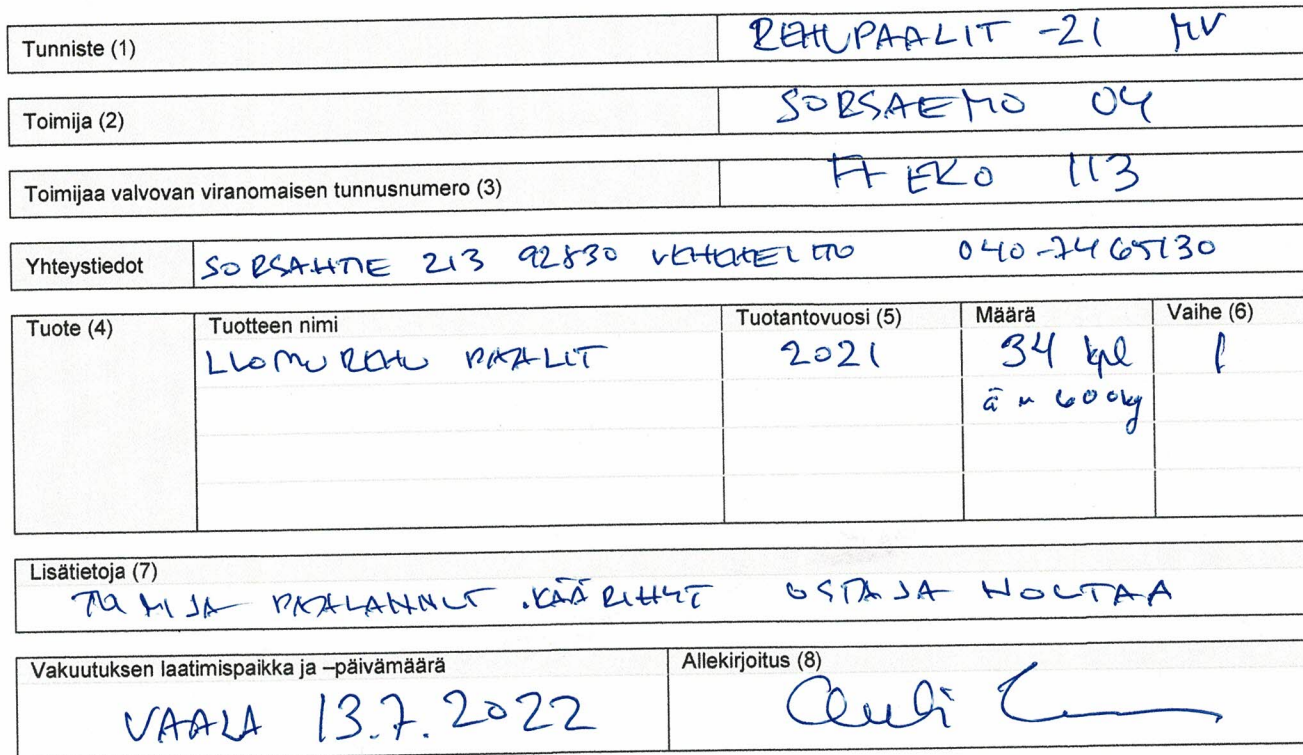 Tunniste (1) REHUPAALIT -21 MV
Toimija (2) SORSAEMO 04
Toimijaa valvovan viranomaisen tunnusnumero (3) FI EKO 113
Yhteystiedot SORSAHTIE 213 92830 040-7465130
Tuote (4) Tuotteen nimi Tuotantovuosi (5) Määrä Vaihe (6)
LUOMU REHU PAALIT 2021 34 kpl 1
à n 600kg
Lisätietoja (7)
PAALANNUT KÄÄRINYT OSTAJA NOUTAA
Vakuutuksen laatimispaikka ja –päivämäärä Allekirjoitus (8)
VAALA 13.7.2022